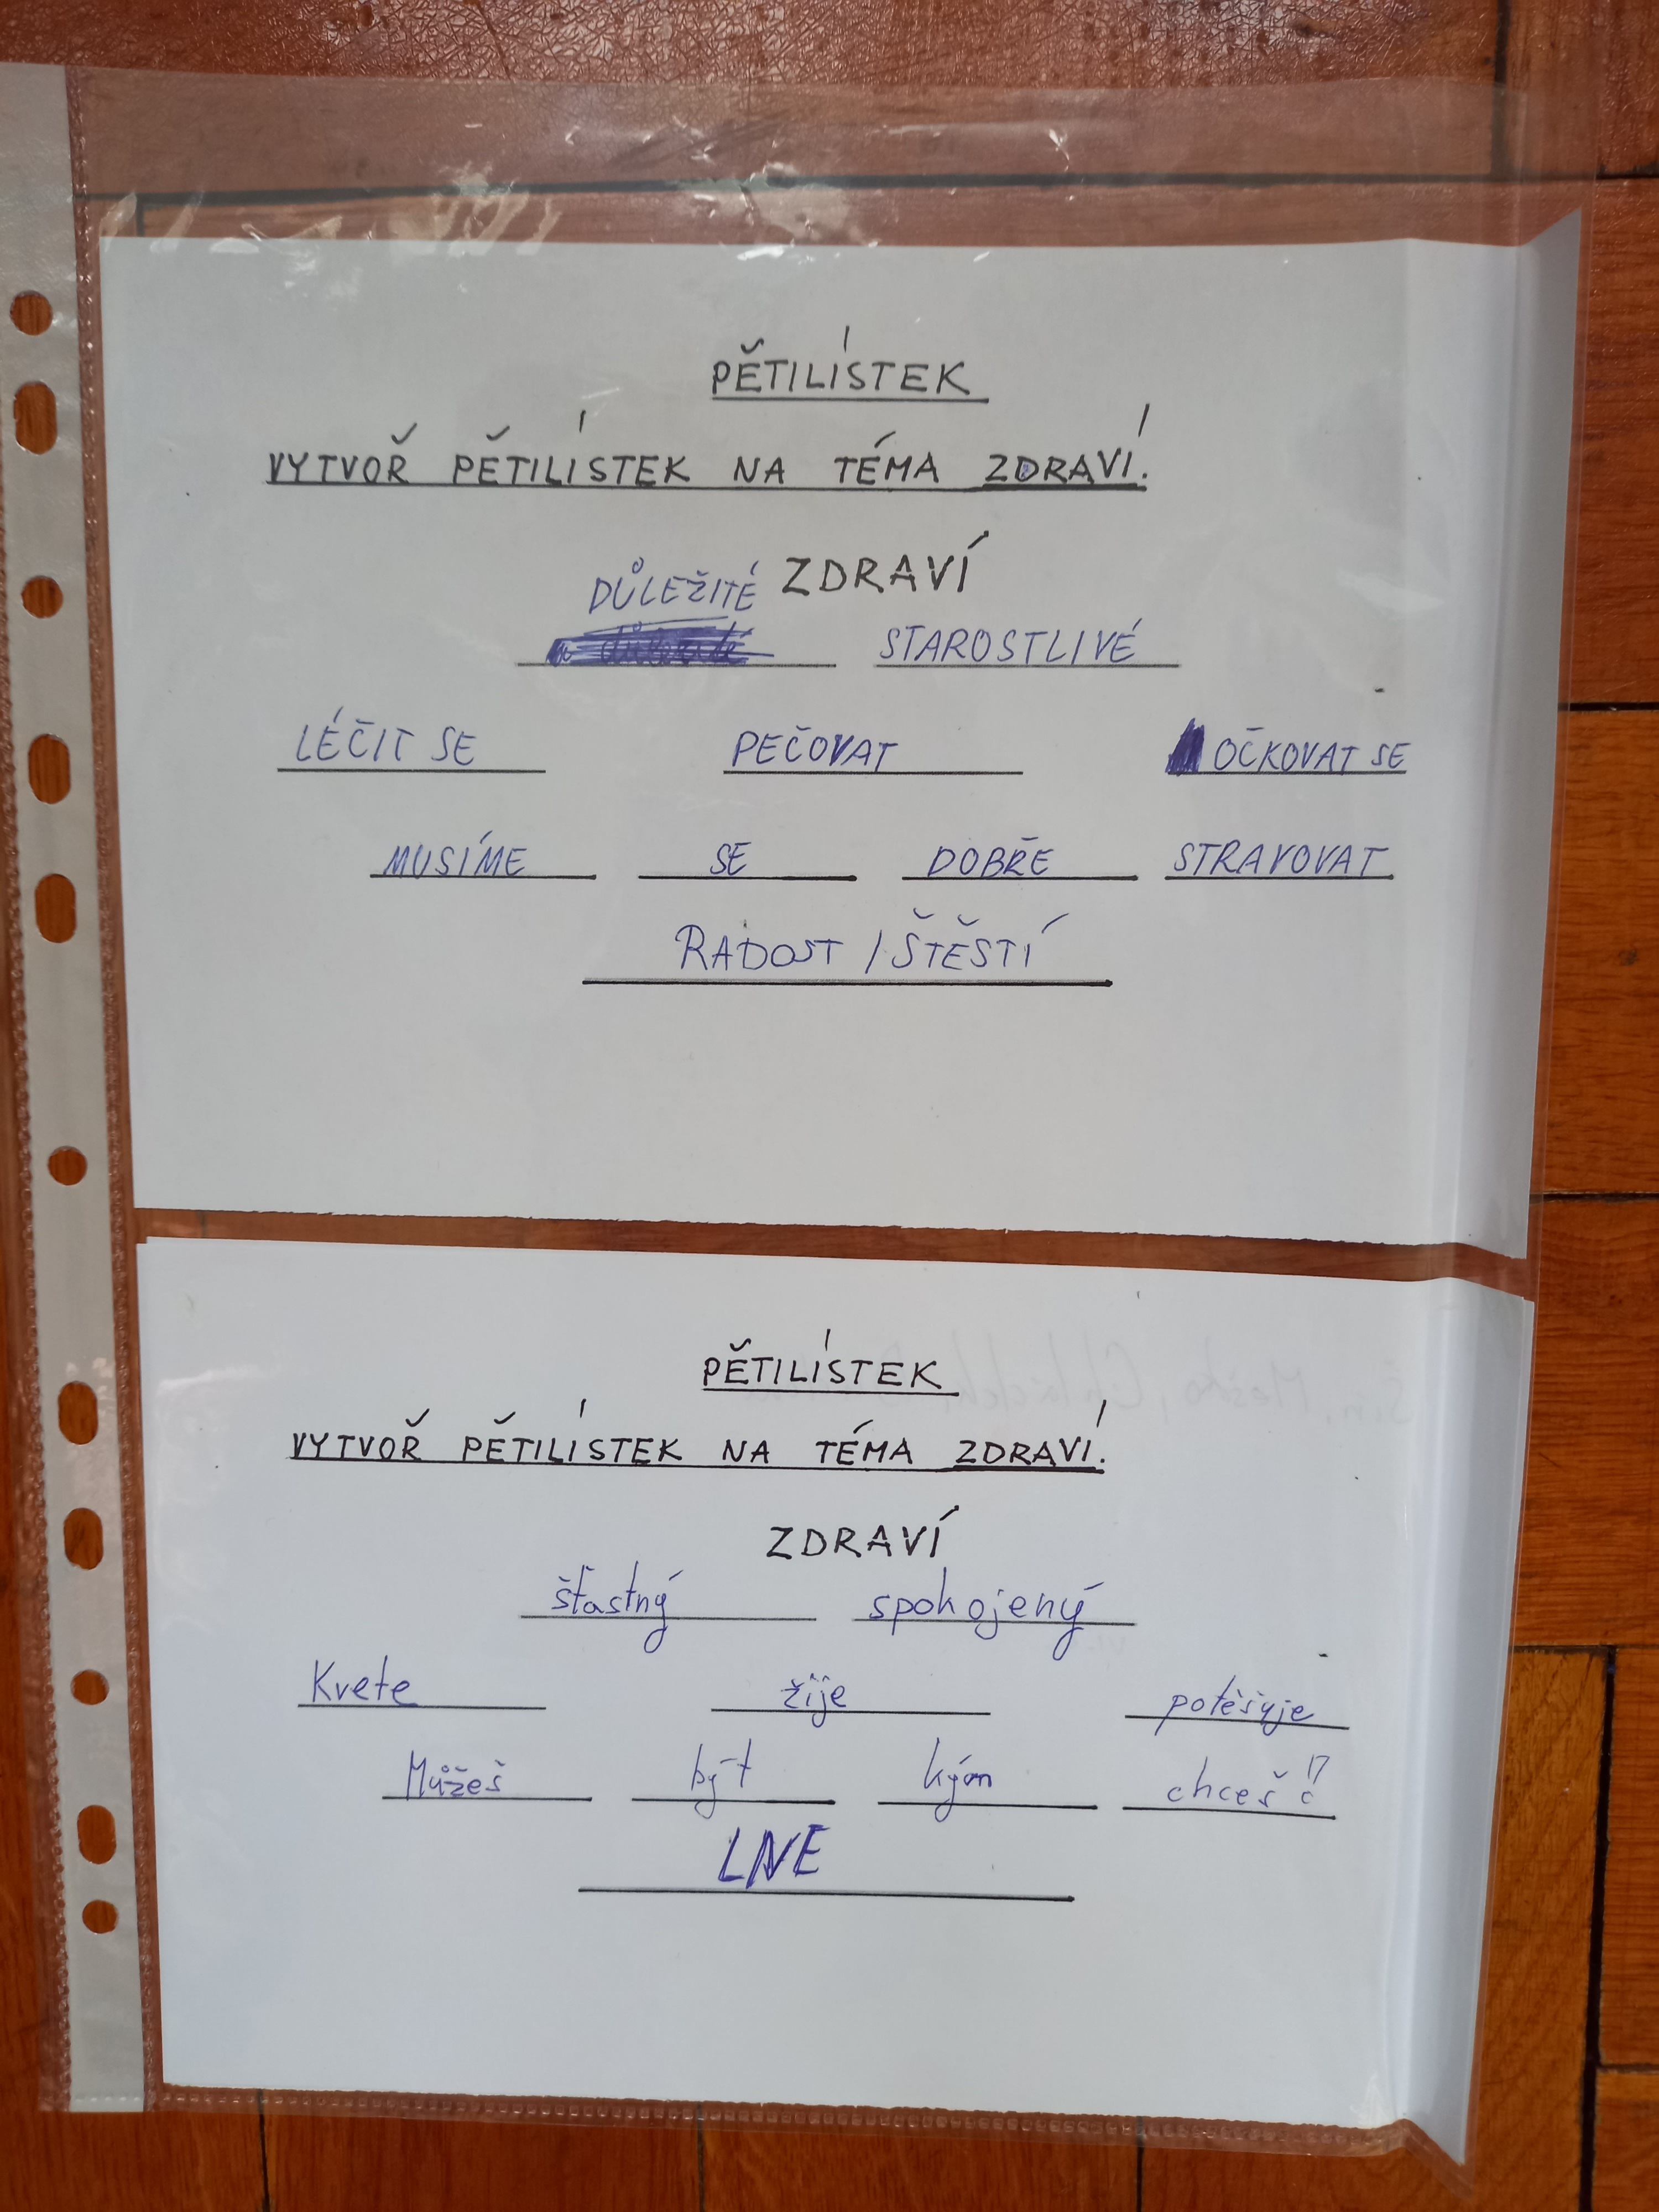 PĚTILÍSTEK
VYTVOŘ PĚTILÍSTEK NA TÉMA ZDRAVÍ.
ZDRAVÍ
DŮLEŽITÉ STAROSTLIVÉ
LÉČIT SE PEČOVAT OČKOVAT SE
MUSÍME SE DOBŘE STRAVOVAT
RADOST / ŠTĚSTÍ
PĚTILÍSTEK
VYTVOŘ PĚTILÍSTEK NA TÉMA ZDRAVÍ.
ZDRAVÍ
šťastný spokojený
Kvete žije potěšuje
Můžeš být kým chceš